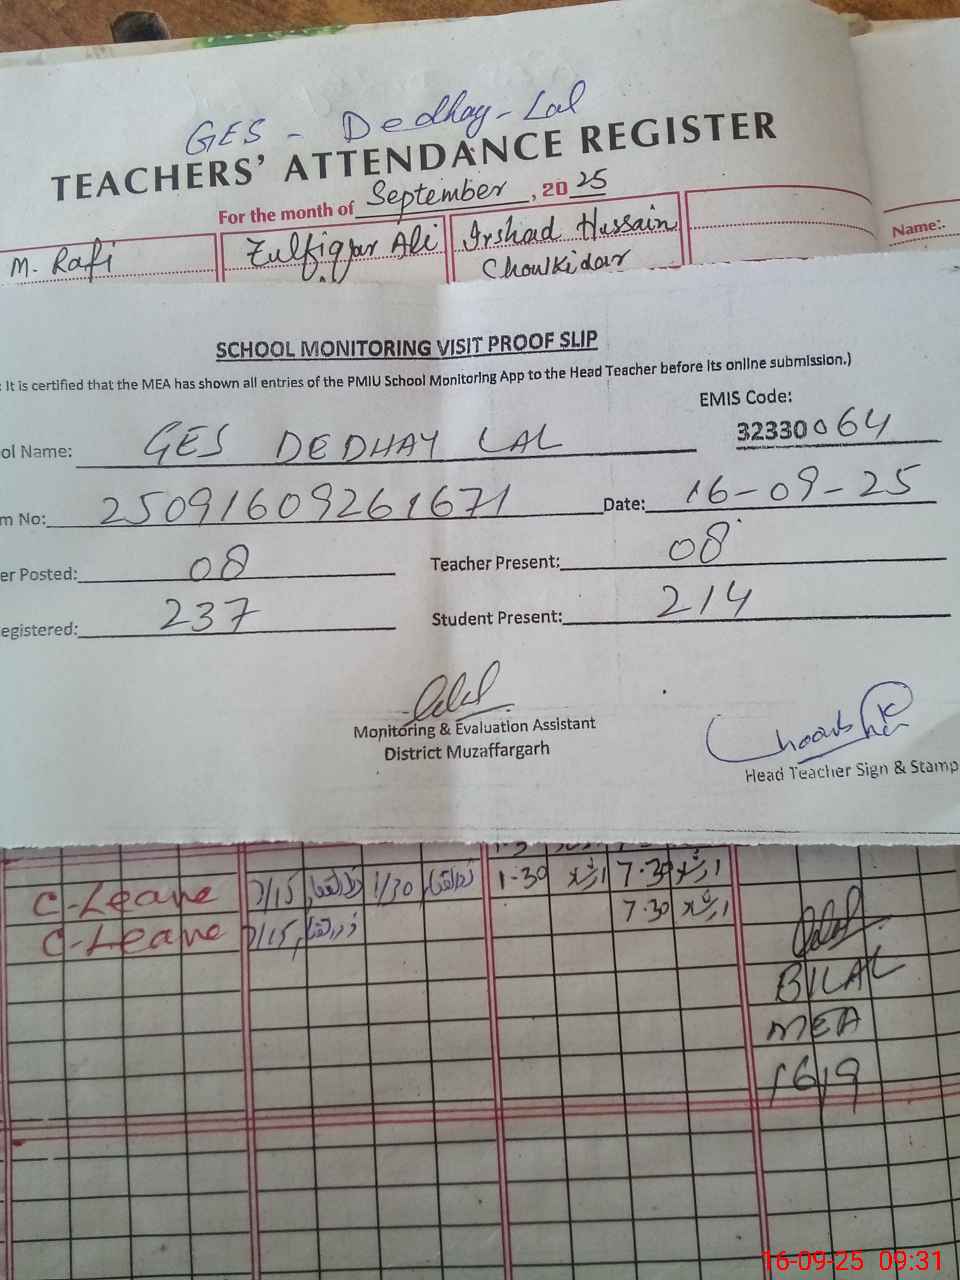 GES - Dedhay-Lal
TEACHERS' ATTENDANCE REGISTER
For the month of September, 2025
M. Rafi Zulfiqar Ali Irshad Hussain Name:-
Chowkidar
SCHOOL MONITORING VISIT PROOF SLIP
: It is certified that the MEA has shown all entries of the PMIU School Monitoring App to the Head Teacher before its online submission.)
EMIS Code:
ol Name: GES DEDHAY LAL 32330064
m No: 25091609261671 Date: 16-09-25
er Posted: 08 Teacher Present: 08
egistered: 237 Student Present: 214
Monitoring & Evaluation Assistant
District Muzaffargarh
Head Teacher Sign & Stamp
C-Leave 7/15 1/30 1.30 7.30
C-Leave 7/15 7.30
BILAL
MEA
16/9
16-09-25 09:31